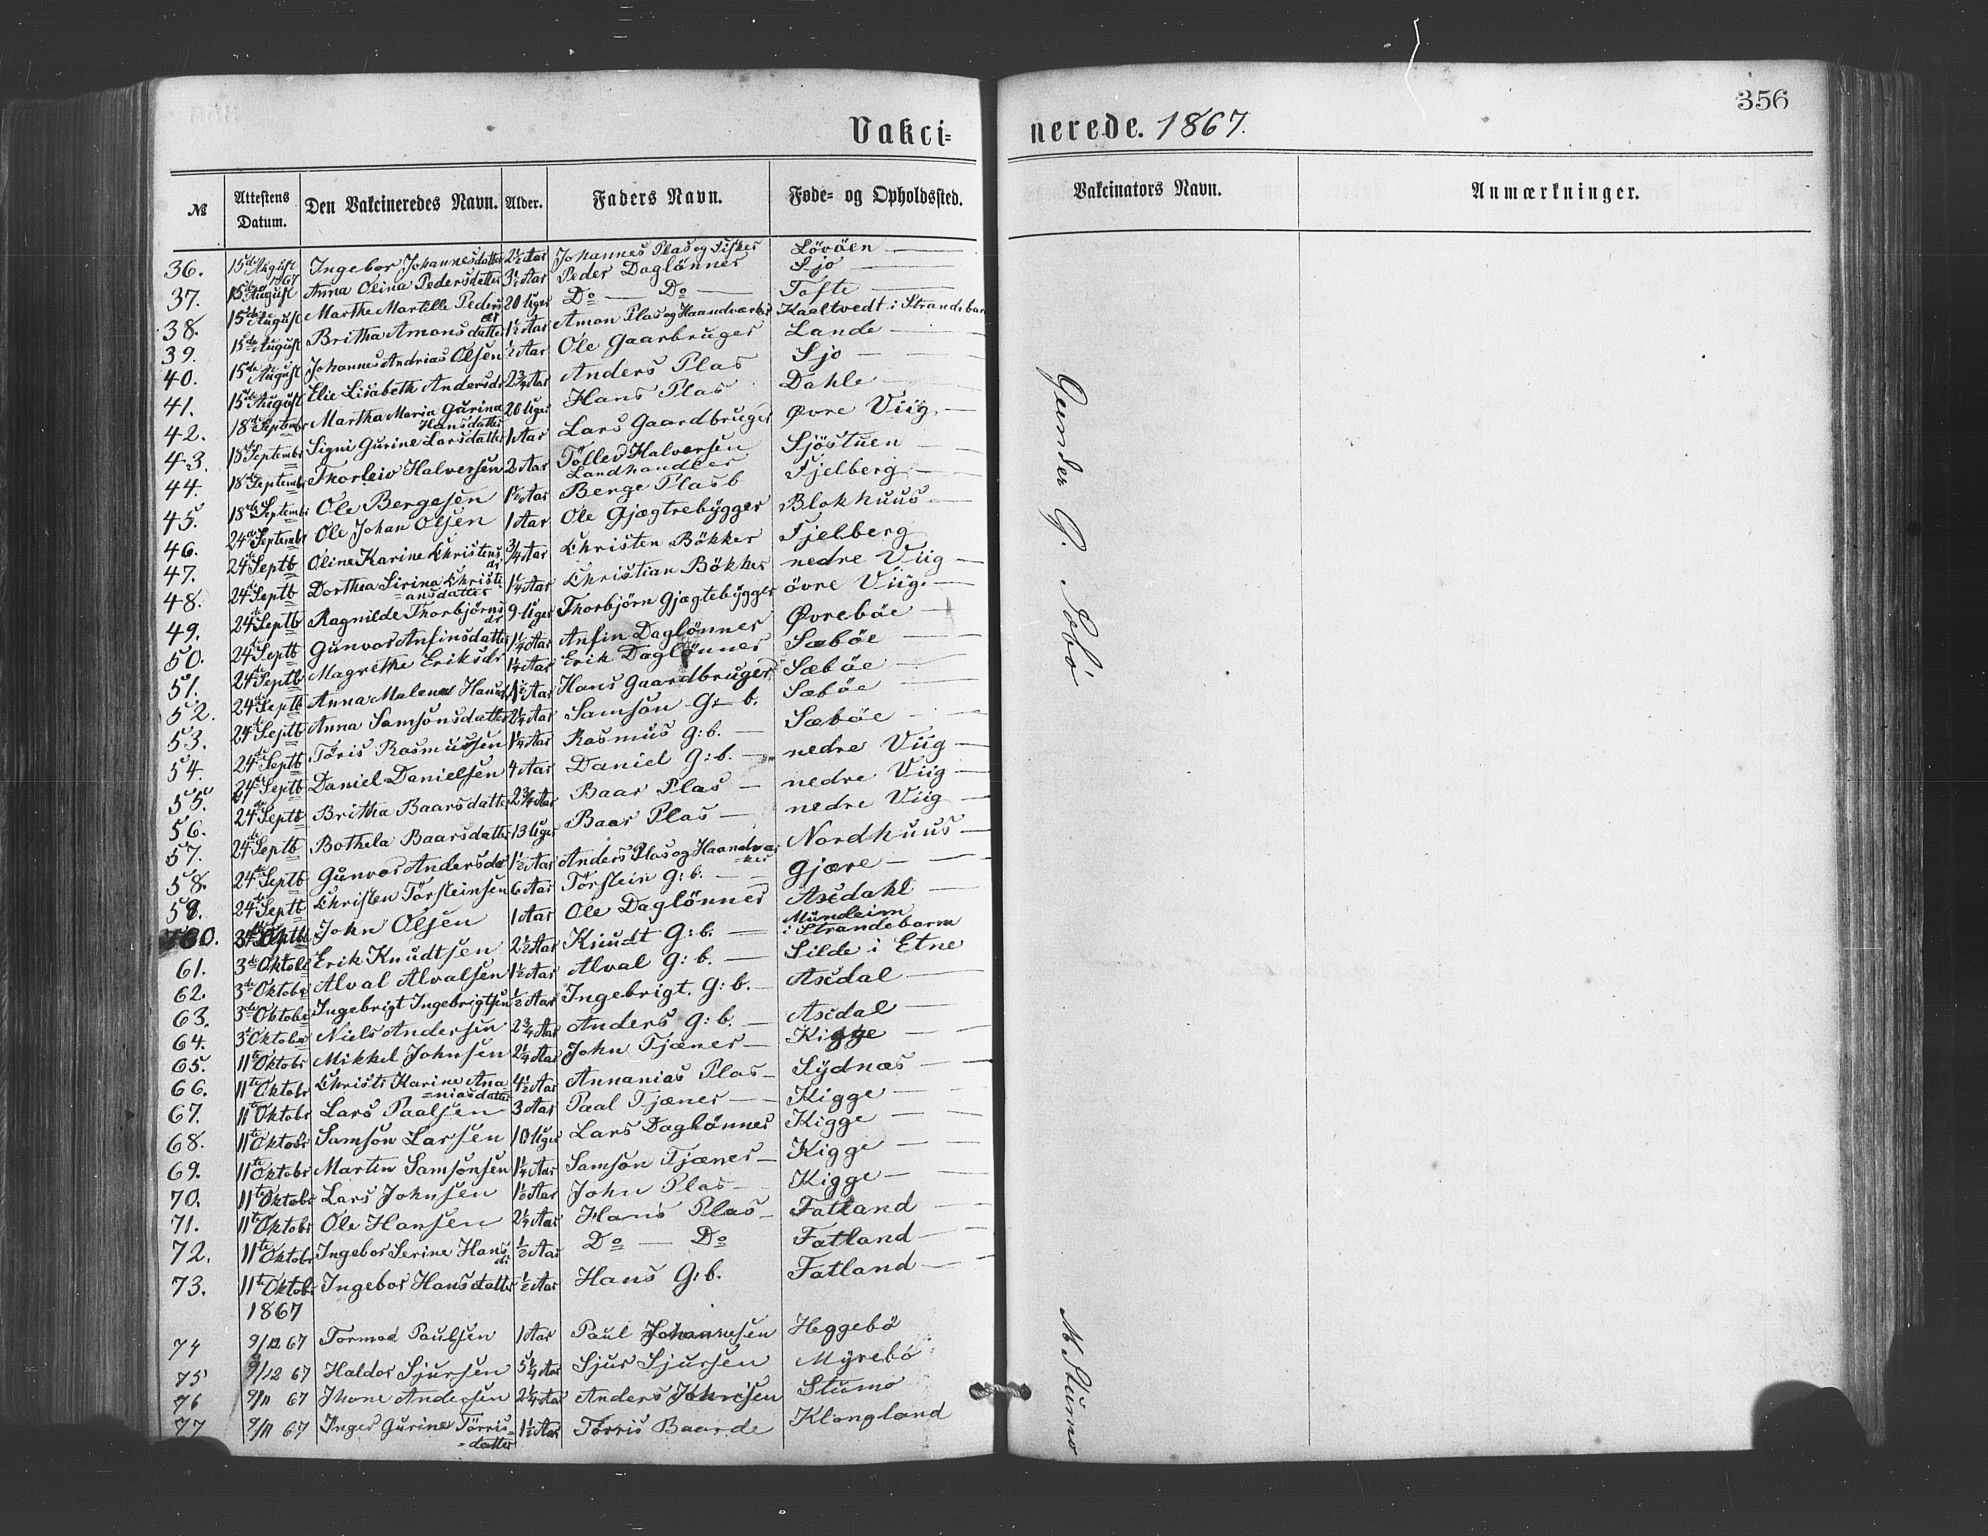 356
Vakci= nerede. 1867.
№ Attestens Datum. Den Vakcineredes Navn. Alder. Faders Navn. Føde- og Opholdssted. Vakcinators Navn. Anmærkninger.
36. 15de August 1867 Ingebor Johannesdatter 2½ Aar Johannes Plas og Fisker Lövöen
37. 15de August Anna Olina Pedersdatter 3½ Aar Peder Daglönner Sjo
38. 15de August Marthe Martille Pedersdr 20 Uger Do — Do Tofte
39. 15de August Britha Amonsdatter 1½ Aar Amon Plas og Haandværker Kaaltvedt i Strandebarm
40. 15de August Johannes Andrias Olsen ½ Aar Ole Gaarbruger Lande
41. 15de August Elie Lisabeth Andersdr 2¾ Aar Anders Plas Sjo
42. 18de Septembr Martha Maria Gurina Hansdatter 20 Uger Hans Plas Dahle
43. 18de Septembr Signi Gurine Larsdatter 1 Aar Lars Gaardbruger Øvre Viig
44. 18de Septembr Thorleiv Halversen 2 Aar Tölled Halversen Landhandler Sjöstuen
45. 18de Septembr Ole Bergesen 1½ Aar Berge Plasb Fjelberg
46. 24de Septembr Ole Johan Olsen 1 Aar Ole Gjægtrebÿgger Blokhuus
47. 24de Septb Oline Karine Christensdr ¾ Aar Christen Bökker Fjelberg
48. 24de Septb Dorthea Sirina Christiansdatter 1¼ Aar Christian Bökker nedre Viig
49. 24de Septb Ragnilde Thorbjørnsdr 9 Uger Thorbjörn Gjægtebÿgger övre Viig
50. 24de Septb Gunvor Anfinsdatter 1¼ Aar Anfin Daglönner Øvrebøe
51. 24de Septb Magrethe Eriksdr 1¼ Aar Erik Daglønner Sæbøe
52. 24de Septb Anna Malena Hansd 1½ Aar Hans Gaardbruger Sæbøe
53. 24de Septb Anna Samsonsdatter 2¼ Aar Samson G- b. Sæbøe
54. 24de Septb Tøris Rasmussen 1¼ Aar Rasmus G:b. Sæbøe
55. 24de Septb Daniel Danielsen 4 Aar Daniel G:b. nedre Viig
56. 24de Septb Britha Baarsdatter 2¾ Aar Baar Plas nedre Viig
57. 24de Septb Bothela Baarsdatter 13 Uger Baar Plas nedre Viig
58. 24de Septb Gunvor Andersdr 1½ Aar Anders Plas og Haandværker Nordhuus
59. 24de Septb Christen Törsteinsen 6 Aar Törstein G:b. Gjære
60. 24de Septb John Olsen 1 Aar Ole Daglönner Axdahl
61. 3de Oktobr Erik Knudtsen 2½ Aar Knudt G:b. Mundeim i Strandebarm
62. 3de Oktobr Alval Alvalsen 1½ Aar Alval G:b. Silde i Etne
63. 3de Oktobr Ingebrigt Ingebrigtsen ½ Aar Ingebrigt. G:b. Axdal
64. 3de Oktobr Niels Andersen 2¾ Aar Anders G:b. Axdal
65. 11te Oktobr Mikkel Johnsen 2¼ Aar John Tjæner Kigge
66. 11te Oktobr Christi Karine Ananiasdatter 4½ Aar Annanias Plas Sÿdnæs
67. 11te Oktobr Lars Paalsen 3 Aar Paal Tjæner Kigge
68. 11te Oktobr Samson Larsen 10 Uger Lars Daglönner Kigge
69. 11te Oktobr Martin Samsonsen 1¼ Aar Samson Tjæner Kigge
70. 11te Oktobr Lars Johnsen 1½ Aar John Plas Kigge
71. 11te Oktobr Ole Hansen 2¼ Aar Hans Plas Fatland
72. 11te Oktobr Ingebor Serine Hansdr ½ Aar Do — Do Fatland
73. 11te Oktobr 1867 Ingebor Hansdatter ½ Aar Hans G:b. Fatland
74 9/12 67 Tormod Paulsen 1 Aar Paul Johannesen Heggebö
75 9/12 67 Haldor Sjursen 5¼ Aar Sjur Sjursen Mÿrebö
76 9/11 67 Thone Andersen 2¼ Aar Anders Johnsen Stumo
77 9/11 67 Inger Gurine Törrisdatter 1½ Aar Törris Baarde Klongland
Gunder G. Sæbö
M Stumo